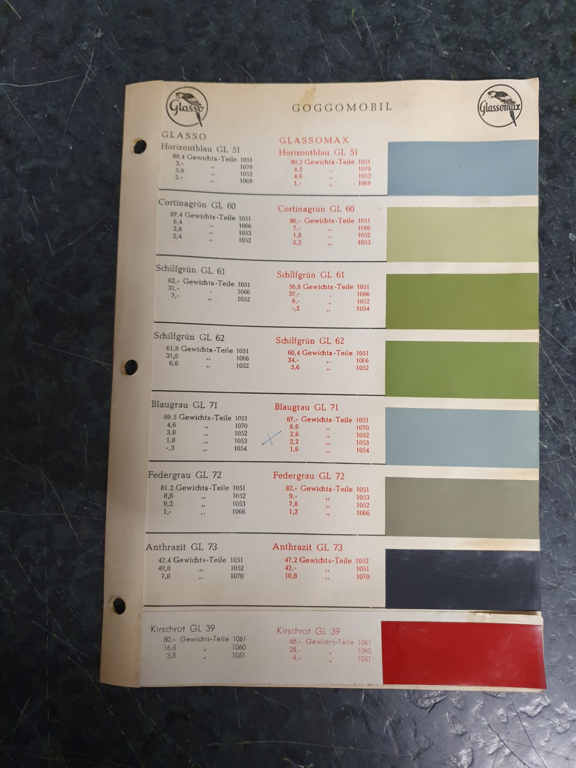 Glasso
GOGGOMOBIL
Glassomax
GLASSO
Horizontblau GL 51
89,4 Gewichts-Teile 1051
3,- „ 1070
5,6 „ 1052
2,- „ 1069
GLASSOMAX
Horizontblau GL 51
90,2 Gewichts-Teile 1051
4,2 „ 1070
4,6 „ 1052
1,- „ 1069
Cortinagrün GL 60
87,4 Gewichts-Teile 1051
6,4 „ 1066
3,8 „ 1053
2,4 „ 1052
Cortinagrün GL 60
86,- Gewichts-Teile 1051
7,- „ 1066
1,8 „ 1052
5,2 „ 1053
Schilfgrün GL 61
62,- Gewichts-Teile 1051
31,- „ 1066
7,- „ 1052
Schilfgrün GL 61
56,8 Gewichts-Teile 1051
37,- „ 1066
6,- „ 1052
-,2 „ 1054
Schilfgrün GL 62
61,8 Gewichts-Teile 1051
31,6 „ 1066
6,6 „ 1052
Schilfgrün GL 62
60,4 Gewichts-Teile 1051
34,- „ 1066
5,6 „ 1052
Blaugrau GL 71
89,5 Gewichts-Teile 1051
4,6 „ 1070
3,8 „ 1052
1,8 „ 1053
-,3 „ 1054
Blaugrau GL 71
87,- Gewichts-Teile 1051
6,6 „ 1070
2,6 „ 1052
2,2 „ 1053
1,6 „ 1054
Federgrau GL 72
81,2 Gewichts-Teile 1051
8,6 „ 1052
9,2 „ 1053
1,- „ 1066
Federgrau GL 72
82,- Gewichts-Teile 1051
9,- „ 1053
7,8 „ 1052
1,2 „ 1066
Anthrazit GL 73
42,4 Gewichts-Teile 1051
49,8 „ 1052
7,8 „ 1070
Anthrazit GL 73
47,2 Gewichts-Teile 1052
42,- „ 1051
10,8 „ 1070
Kirschrot GL 39
80,- Gewichts-Teile 1061
16,5 „ 1060
3,5 „ 1051
Kirschrot GL 39
68,- Gewichts-Teile 1061
28,- „ 1060
4,- „ 1051